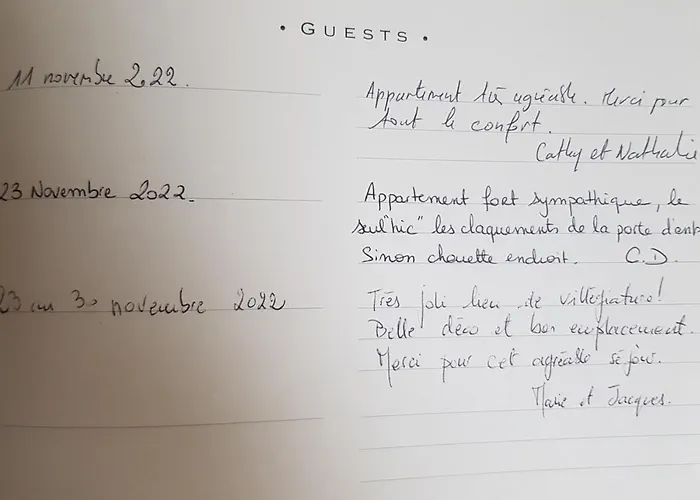 • GUESTS •
11 novembre 2022.
Appartement très agréable. Merci pour
tout le confort.
Cathy et Nathalie
23 Novembre 2022.
Appartement fort sympathique, le
seul "hic" les claquements de la porte d'ent
Sinon chouette endroit. C.D.
23 au 30 novembre 2022
Très joli lieu de villégiature!
Belle déco et bon emplacement.
Merci pour cet agréable séjour.
Marie et Jacques.